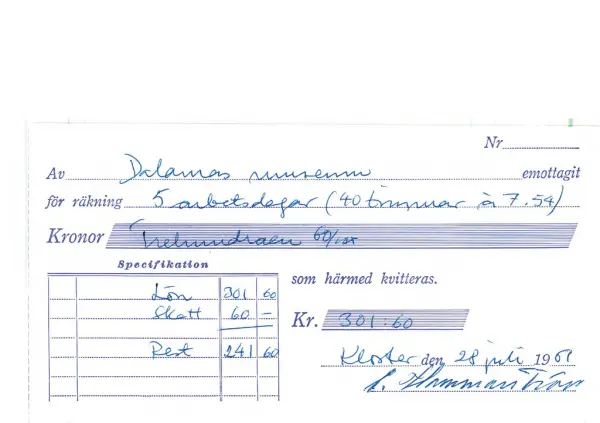 Nr
Av Dalarnas museum emottagit
för räkning 5 arbetsdagar (40 timmar à 7.54)
Kronor Trehundraen 60/100
Specifikation
som härmed kvitteras.
Lön 301 60
Skatt 60 –
Kr. 301:60
Rest 241 60
Kloster den 28 juli 1961